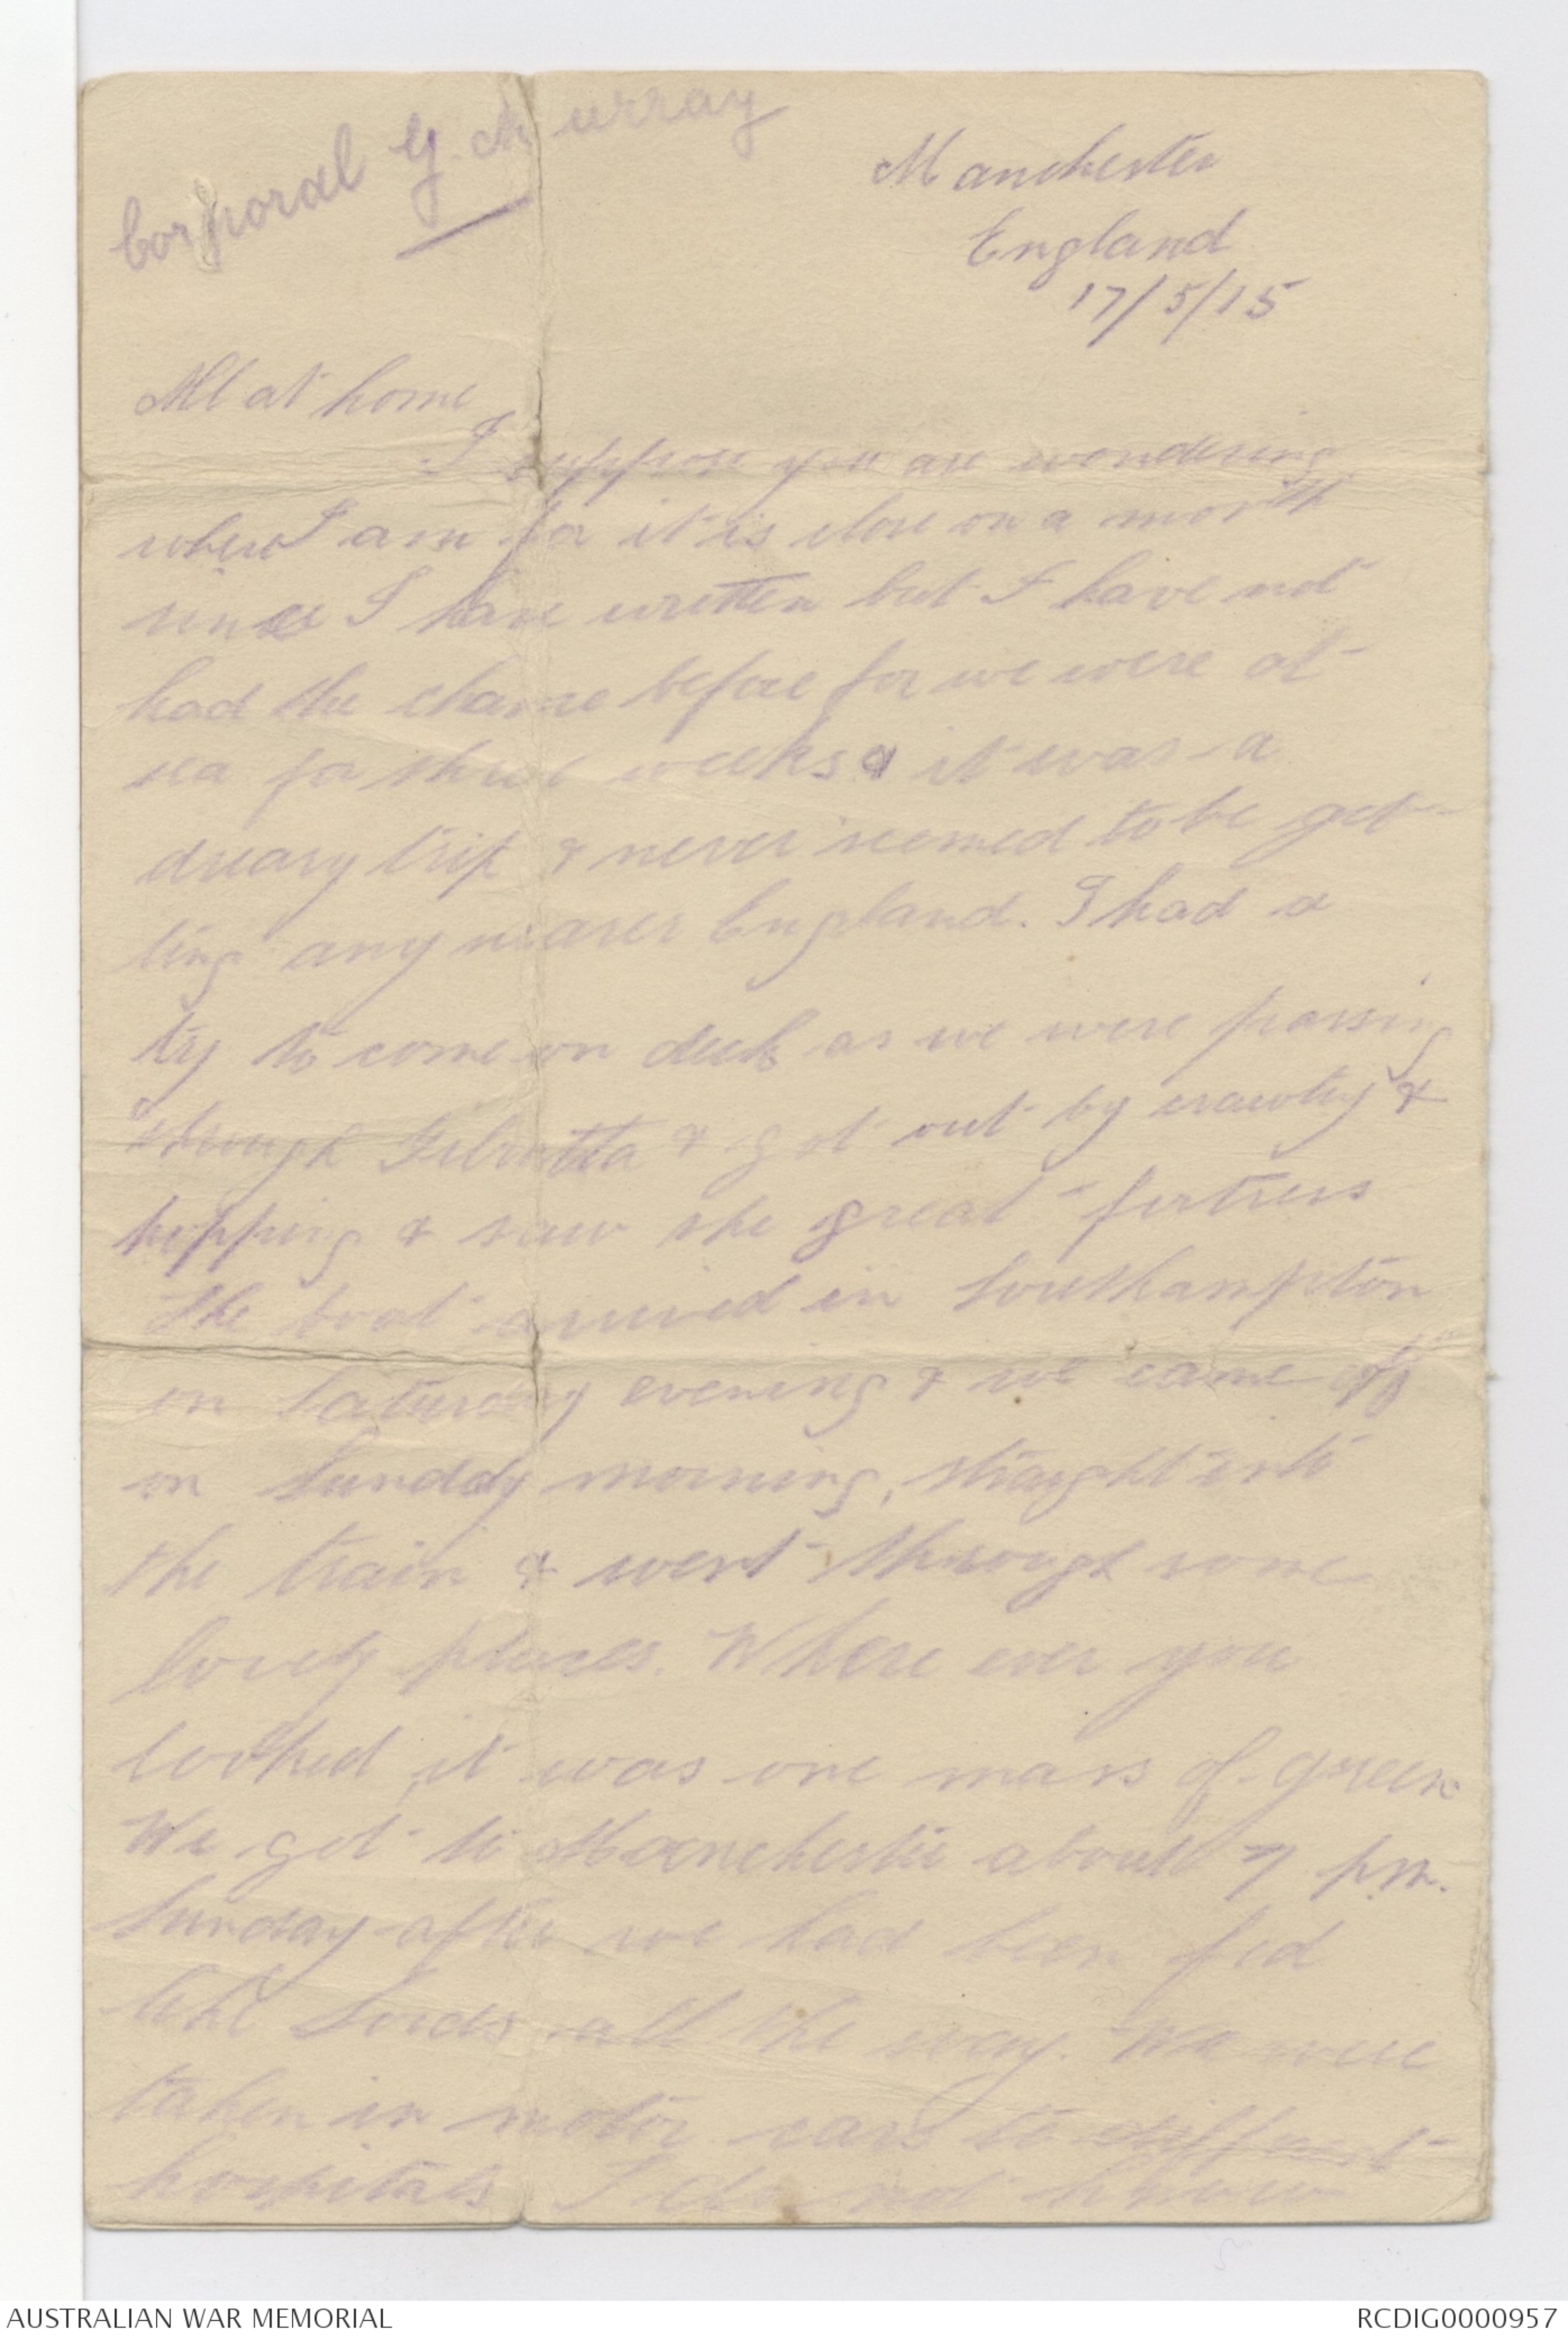 Corporal G. Murray
Manchester
England
17/5/15
All at home
I suppose you are wondering
where I am for it is close on a month
since I have written but I have not
had the chance before for we were at
sea for three weeks & it was a
dreary trip & never seemed to be get-
ting any nearer England. I had a
try to come on deck as we were passing
through Gibralta & got out by crawling &
hopping & saw the great fortress
The boat arrived in Southampton
on Saturday evening & we came off
on Sunday morning, straight into
the train & went through some
lovely places. Where ever you
looked it was one mass of green
We got to Manchester about 7 pm.
Sunday after we had been fed
like Lords all the way. We were
taken in motor cars to different
hospitals I do not know
AUSTRALIAN WAR MEMORIAL
RCDIG0000957